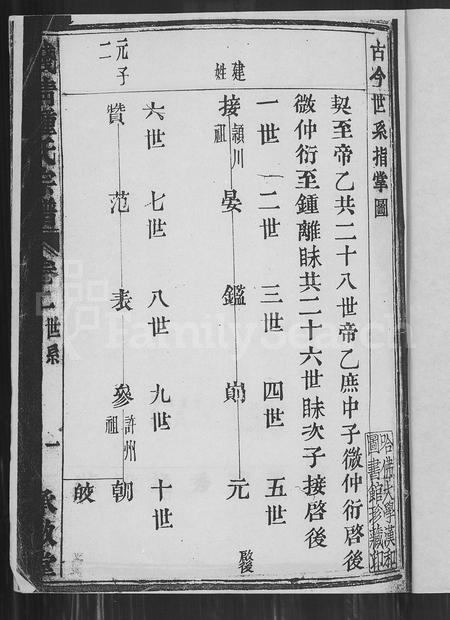 古今世系指掌圖
契至帝乙共二十八世帝乙庶中子微仲衍啓後
微仲衍至鍾離眛共二十六世眛次子接啓後
一世 二世 三世 四世 五世
建姓
接 潁川祖 晏 鑑 元
六世 七世 八世 九世 十世
元子二
贊 范 表 參 許州祖 朝
皎
鍾氏宗譜 卷之 世系 一
哈佛大學漢和圖書館珍藏印
FamilySearch